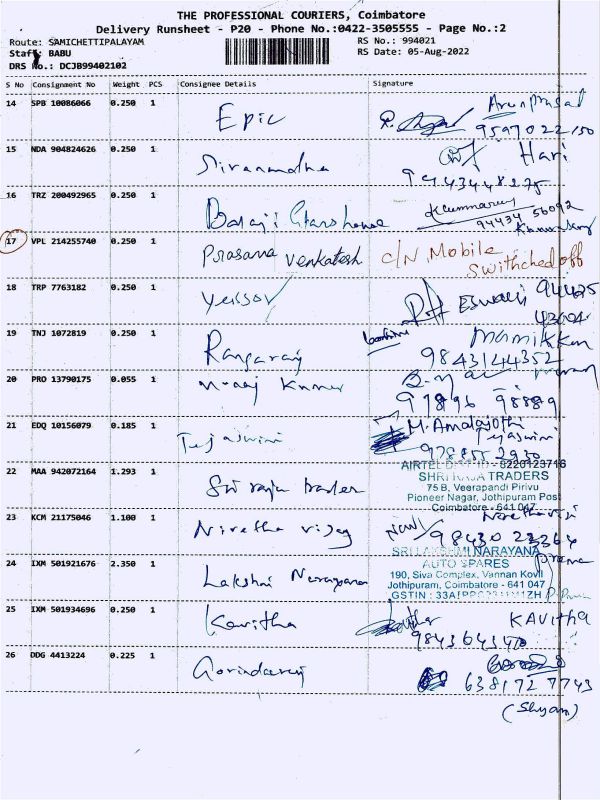 THE PROFESSIONAL COURIERS, Coimbatore
Delivery Runsheet - P20 - Phone No.:0422-3505555 - Page No.:2
Route: SAMICHETTIPALAYAM RS No.: 994021
Staff: BABU RS Date: 05-Aug-2022
DRS No.: DCJB99402102
S No Consignment No Weight PCS Consignee Details Signature
14 SPB 10086066 0.250 1 Epic Arunprasad
15 NDA 904824626 0.250 1 Hari
16 TRZ 200492965 0.250 1 94434 56092
17 VPL 214255740 0.250 1 Prasana Venkatesh C/N Mobile
Swithched off
18 TRP 7763182 0.250 1 Eswari
19 TNJ 1072819 0.250 1 Rangaraj
9843144352
20 PRO 13790175 0.055 1 97896 98889
21 EDQ 10156079 0.185 1 Tejaswini M. Amalajothi
Tejaswini
22 MAA 942072164 1.293 1 Sri raja trader
SHRI RAJA TRADERS
75 B, Veerapandi Pirivu
Pioneer Nagar, Jothipuram Post
Coimbatore - 641 047
23 KCM 21175046 1.100 1 98430 23364
24 IXM 501921676 2.350 1 Lakshmi Narayana
SRI LAKSHMI NARAYANA
AUTO SPARES
190, Siva Complex, Vannan Kovil
Jothipuram, Coimbatore - 641 047
25 IXM 501934696 0.250 1 Kavitha KAVITHA
26 DDG 4413224 0.225 1 Govindaraj
638172 7743
(Shyam)